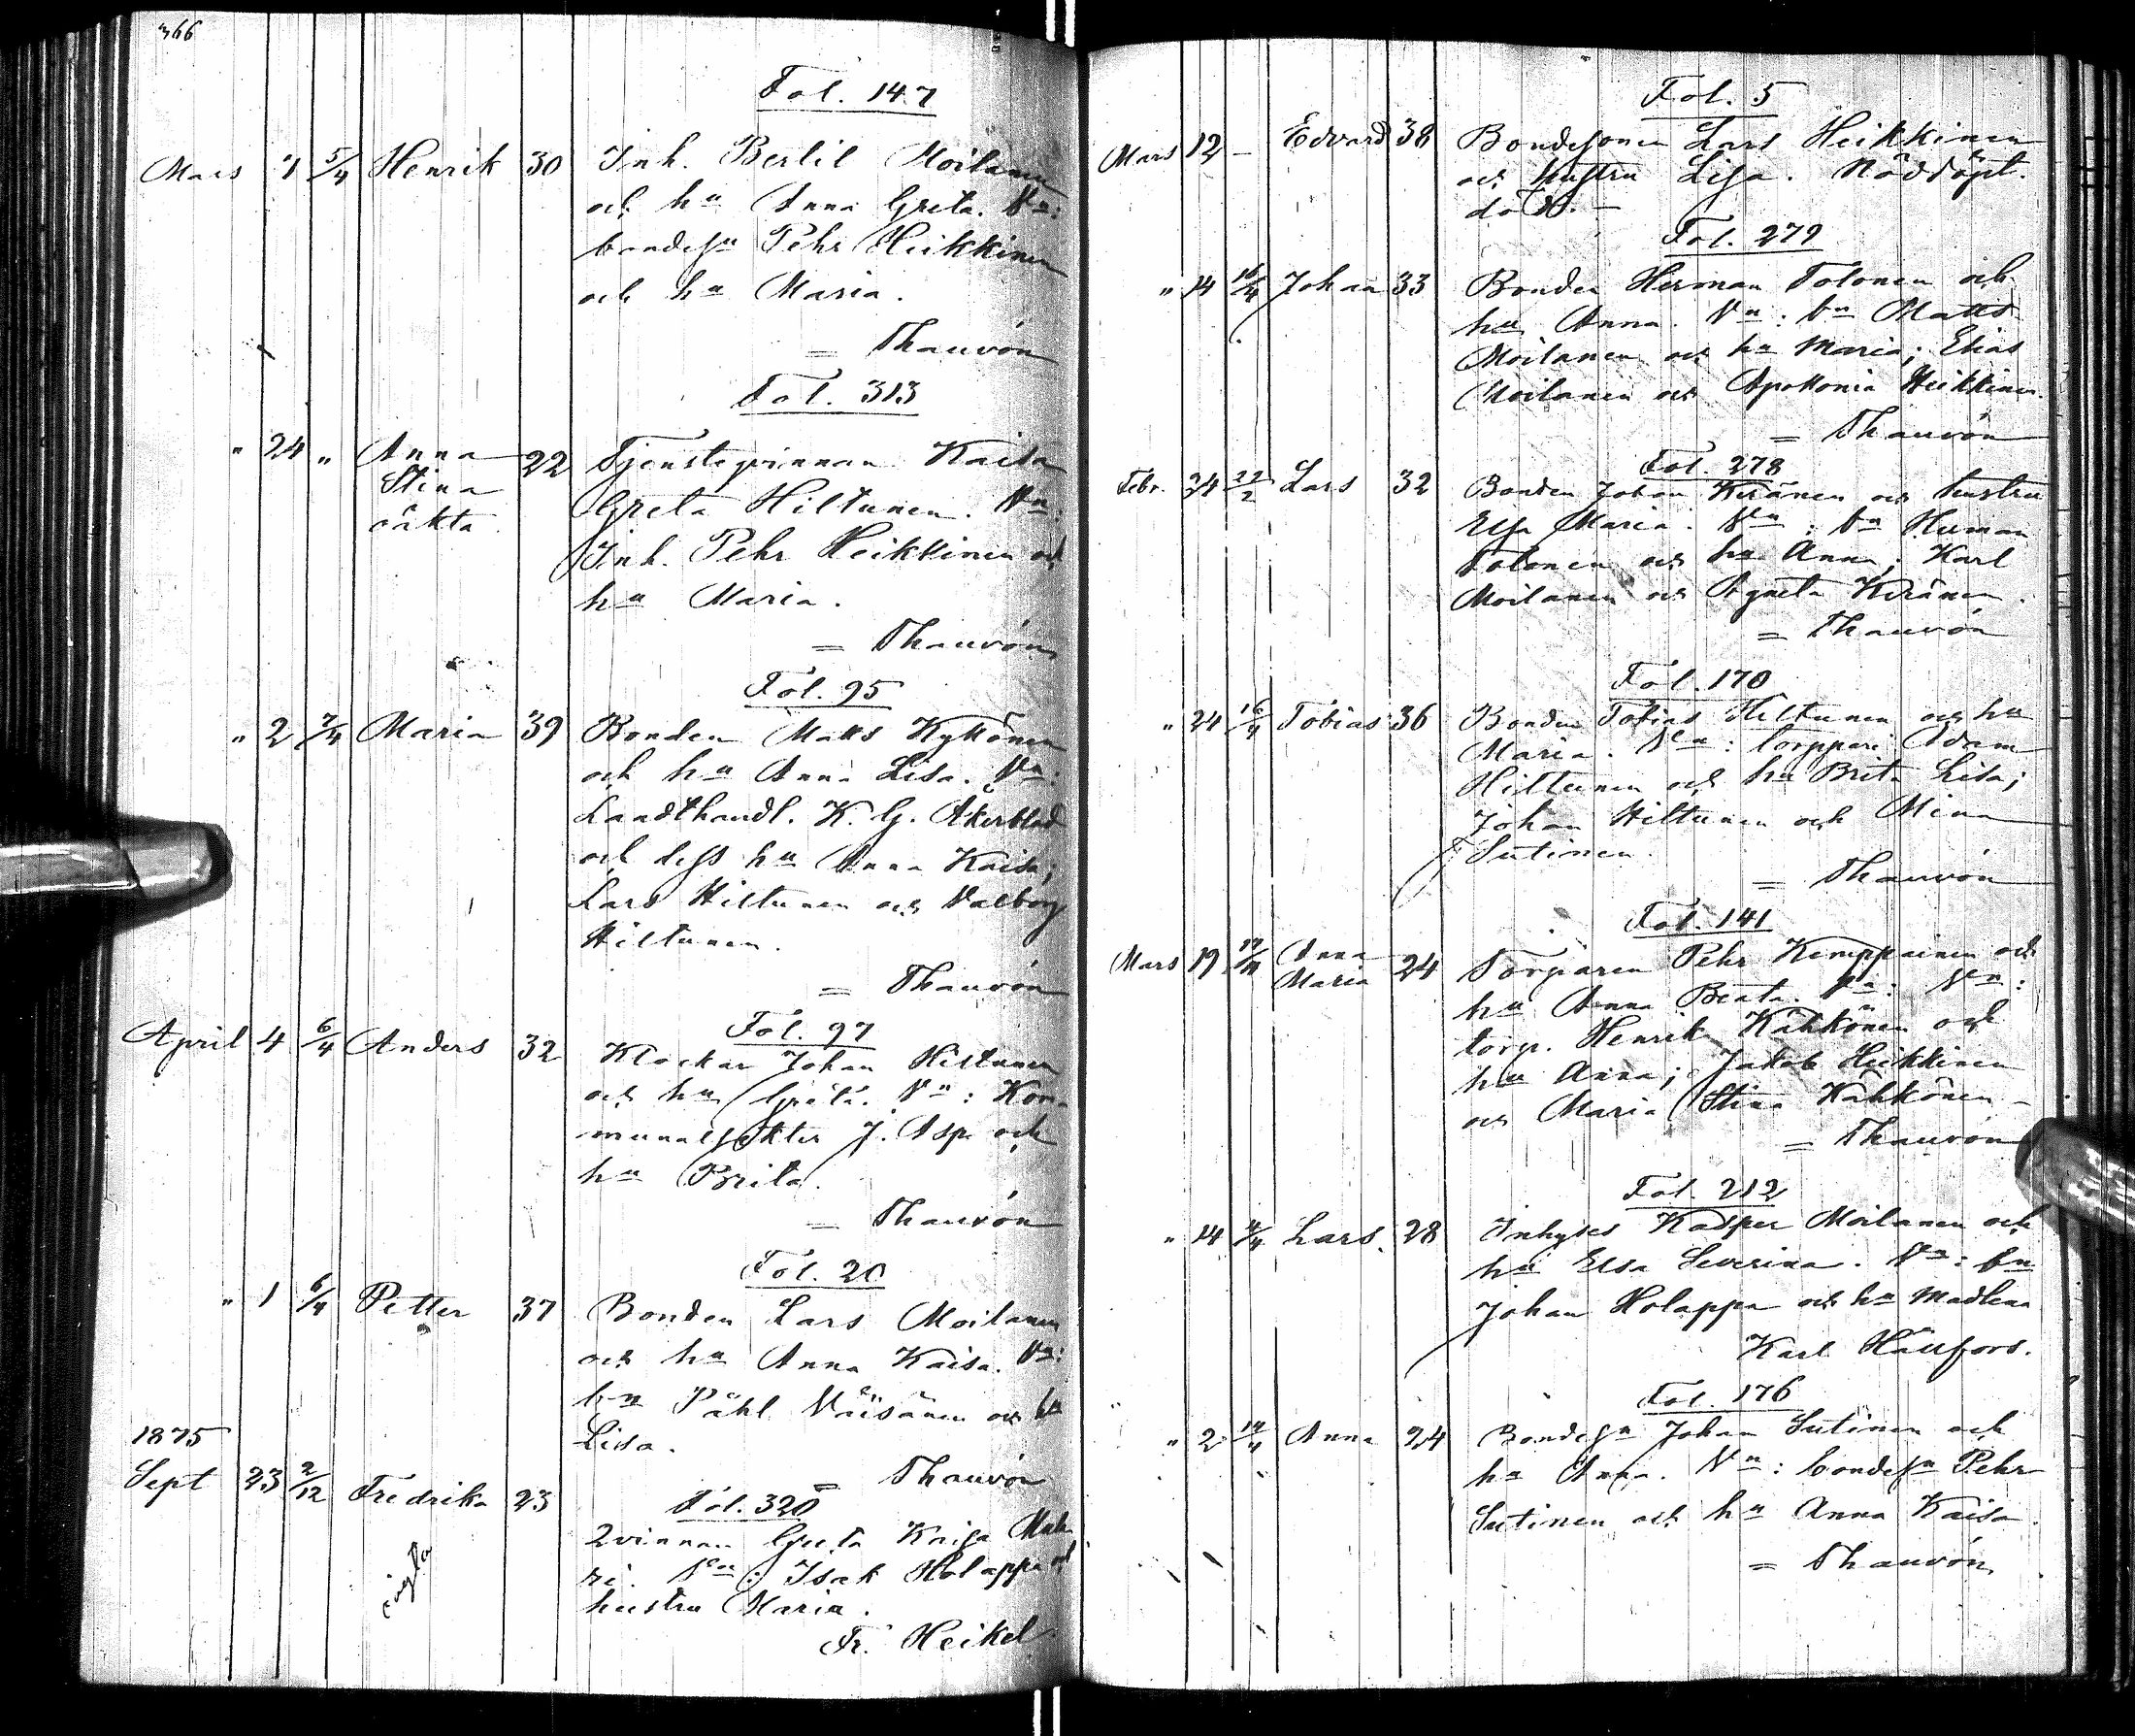 366
Fol. 147
Mars 7 5/4 Henrik 30 Inh. Bertil Moilanen
och hu Anna Greta. Vn:
bondesn Pehr Heikkinen
och hu Maria.
= Thauvón
Fol. 313
" 24 " Anna 22 Tjenstepinnan Kaisa
Stina Greta Hiltunen. Vn:
oäkta Inh. Pehr Heikkinen och
hu Maria.
= Thauvón
Fol. 95
" 2 7/4 Maria 39 Bonden Matts Kykkönen
och hu Anna Lisa. Vn:
Landthandl. K. G. Åkerblad
och dess hu Anna Kaisa;
Lars Hiltunen och Valborg
Hiltunen.
= Thauvón
Fol. 97
April 4 6/4 Anders 32 Klockar Johan Hiltunen
och hu Greta. Vn: Kom-
munal J. Asp och
hu Brita.
= Thauvón
Fol. 20
" 1 6/4 Petter 37 Bonden Lars Moilanen
och hu Anna Kaisa. Vn:
bn Påhl Väisänen och hu
Lisa.
= Thauvón
1875
Fol. 320
Sept 23 2/12 Fredrika 23 Qvinnan Greta Kaisa
Vn: Isak Holappa och
hustru Maria.
Fr. Heikel.
Fol. 5
Mars 12 – Edvard 38 Bondesonen Lars Heikkinen
och hustru Lisa. Nöddöpt.
död. –
Fol. 279
" 14 16/4 Johan 33 Bonden Herman Tolonen och
hu Anna. Vn: bn Matts
Moilanen och hu Maria; Elias
Moilanen och Apollonia Heikkinen.
= Thauvón
Fol. 278
Febr. 24 22/2 Lars 32 Bonden Johan Keränen och hustru
Elsa Maria. Vn: bn Herman
Tolonen och hu Anna; Karl
Moilanen och Agneta Keränen.
= Thauvón
Fol. 170
" 24 16/4 Tobias 36 Bonden Tobias Hiltunen och hu
Maria. Vn: torppari Adam
Hiltunen och hu Brita Lisa;
Johan Hiltunen och Mina
Sutinen.
= Thauvón
Fol. 141
Mars 19 17/4 Anna 24 Torparen Pehr Kemppainen och
Maria hu Anna Beata. Vn: Vn:
torp. Henrik Kähkönen och
hu Anna; Jakob Heikkinen
och Maria Stina Kähkönen –
= Thauvón
Fol. 212
" 14 4/4 Lars. 28 Inhyses Kasper Moilanen och
hu Elsa Severina. Vn: bn
Johan Holappa och hu Madlena
Karl Hällfors.
Fol. 176
" 2 14/4 Anna 24 Bondesn Johan Sutinen och
hu Anna. Vn: bondesn Pehr
Sutinen och hu Anna Kaisa.
= Thauvón